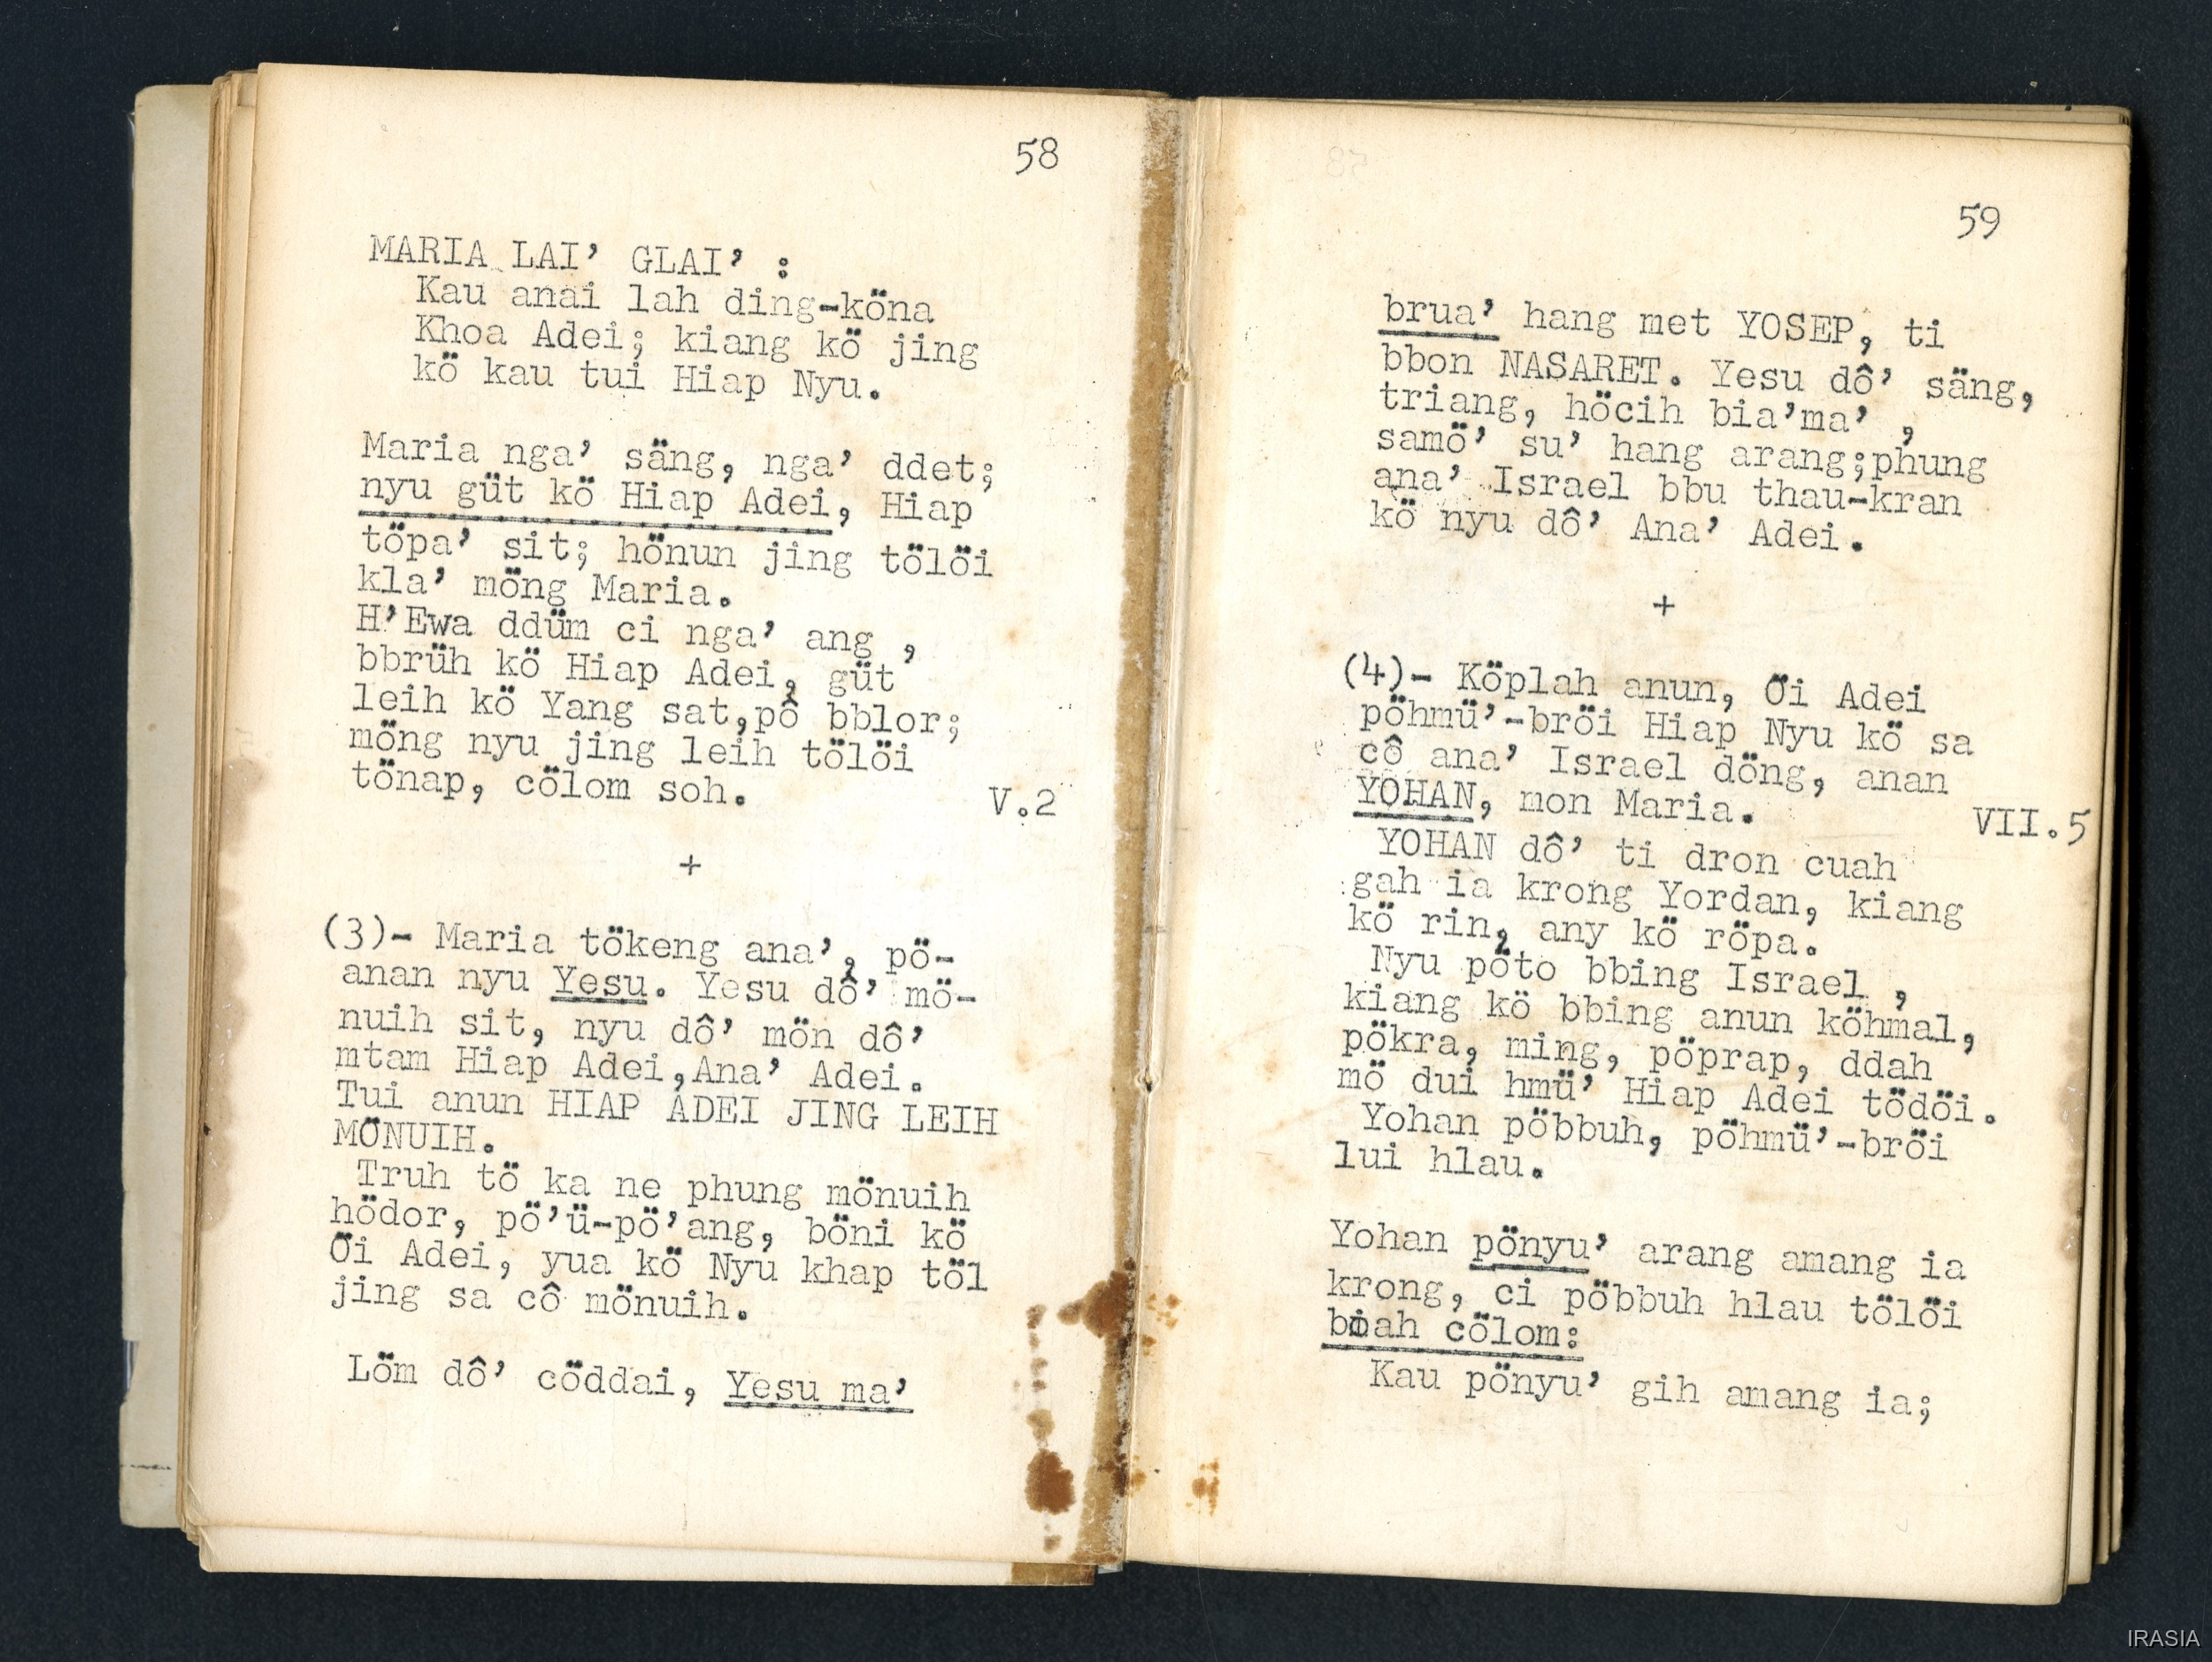 58
MARIA LAI’ GLAI’ :
Kau anai lah ding-köna
Khoa Adei; kiang kö jing
kö kau tui Hiap Nyu.
Maria nga’ säng, nga’ ddet;
nyu güt kö Hiap Adei, Hiap
töpa’ sit; hönun jing tölöi
kla’ möng Maria.
H’Ewa ddüm ci nga’ ang ,
bbrüh kö Hiap Adei, güt
leih kö Yang sat,pô bblor;
möng nyu jing leih tölöi
tönap, cölom soh.
V.2
+
(3)- Maria tökeng ana’, pö-
anan nyu Yesu. Yesu dô’ mö-
nuih sit, nyu dô’ mön dô’
mtam Hiap Adei,Ana’ Adei.
Tui anun HIAP ADEI JING LEIH
MÖNUIH.
Truh tö ka ne phung mönuih
hödor, pö’ü-pö’ang, böni kö
Öi Adei, yua kö Nyu khap töl
jing sa cô mönuih.
Löm dô’ cöddai, Yesu ma’
59
brua’ hang met YOSEP, ti
bbon NASARET. Yesu dô’ säng,
triang, höcih bia’ma’ ,
samö’ su’ hang arang;phung
ana’ Israel bbu thau-kran
kö nyu dô’ Ana’ Adei.
+
(4)- Köplah anun, Öi Adei
pöhmü’-bröi Hiap Nyu kö sa
cô ana’ Israel döng, anan
YOHAN, mon Maria.
VII.5
YOHAN dô’ ti dron cuah
gah ia krong Yordan, kiang
kö rin, any kö röpa.
Nyu pöto bbing Israel ,
kiang kö bbing anun köhmal,
pökra, ming, pöprap, ddah
mö dui hmü’ Hiap Adei tödöi.
Yohan pöbbuh, pöhmü’-bröi
lui hlau.
Yohan pönyu’ arang amang ia
krong, ci pöbbuh hlau tölöi
cölom:
Kau pönyu’ gih amang ia;
IRASIA